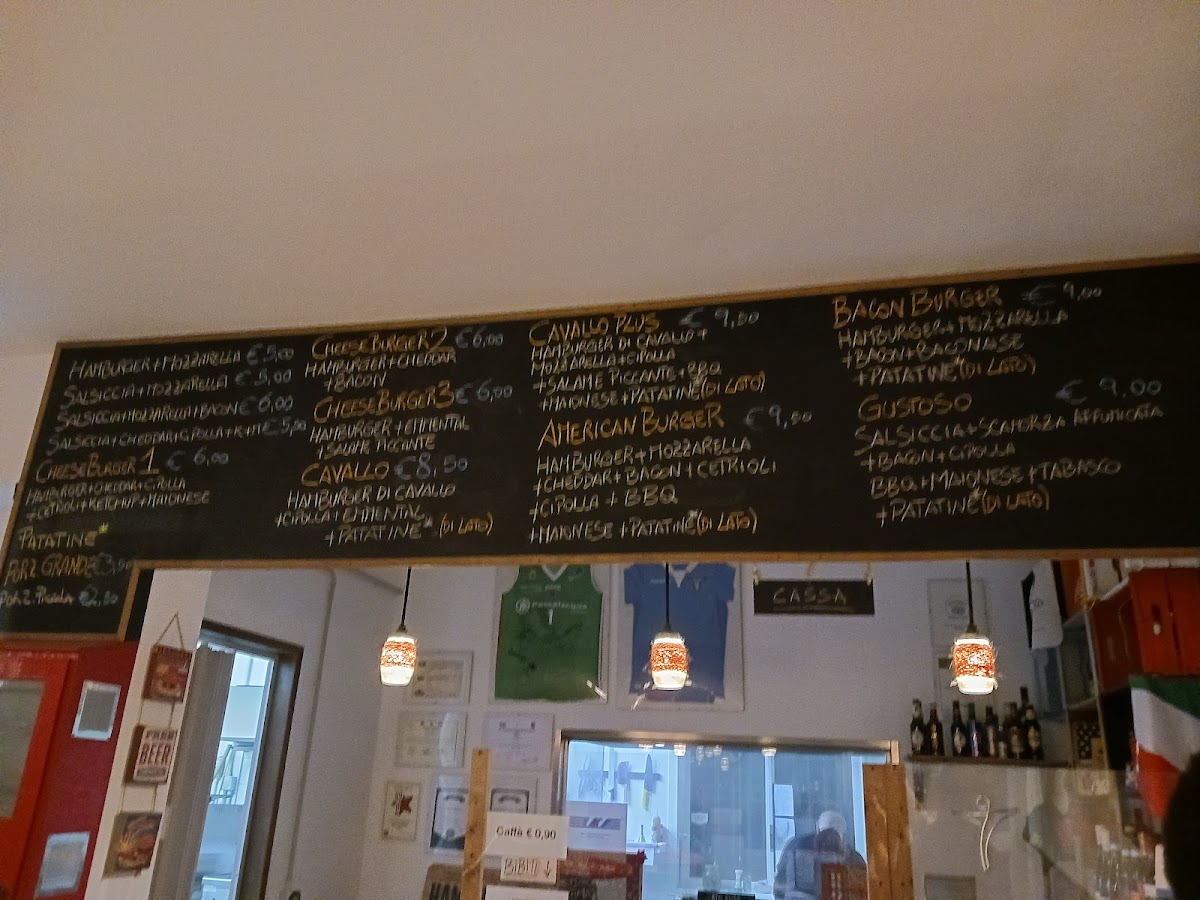 HAMBURGER + MOZZARELLA € 5,00
SALSICCIA + MOZZARELLA € 5,00
SALSICCIA + MOZZARELLA + BACON € 6,00
SALSICCIA + CHEDDAR + CIPOLLA + K + M € 5,50
CHEESEBURGER 1 € 6,00
HAMBURGER + CHEDDAR + CIPOLLA
+ CETRIOLI + KETCHUP + MAIONESE
PATATINE*
PORZ GRANDE € 3,50
PORZ. PICCOLA € 2,50
CHEESEBURGER 2 € 6,00
HAMBURGER + CHEDDAR
+ BACON
CHEESEBURGER 3 € 6,00
HAMBURGER + EMMENTAL
+ SALAME PICCANTE
CAVALLO € 8,50
HAMBURGER DI CAVALLO
+ CIPOLLA + EMMENTAL
+ PATATINE* (DI LATO)
CAVALLO PLUS € 9,50
HAMBURGER DI CAVALLO +
MOZZARELLA + CIPOLLA
+ SALAME PICCANTE + BBQ
+ MAIONESE + PATATINE* (DI LATO)
AMERICAN BURGER € 9,50
HAMBURGER + MOZZARELLA
+ CHEDDAR + BACON + CETRIOLI
+ CIPOLLA + BBQ
+ MAIONESE + PATATINE* (DI LATO)
BACON BURGER € 9,00
HAMBURGER + MOZZARELLA
+ BACON + BACONAISE
+ PATATINE* (DI LATO)
GUSTOSO € 9,00
SALSICCIA + SCAMORZA AFFUMICATA
+ BACON + CIPOLLA
BBQ + MAIONESE + TABASCO
+ PATATINE* (DI LATO)
CASSA
1
BEER
Caffè € 0,90
BIBITE ↓